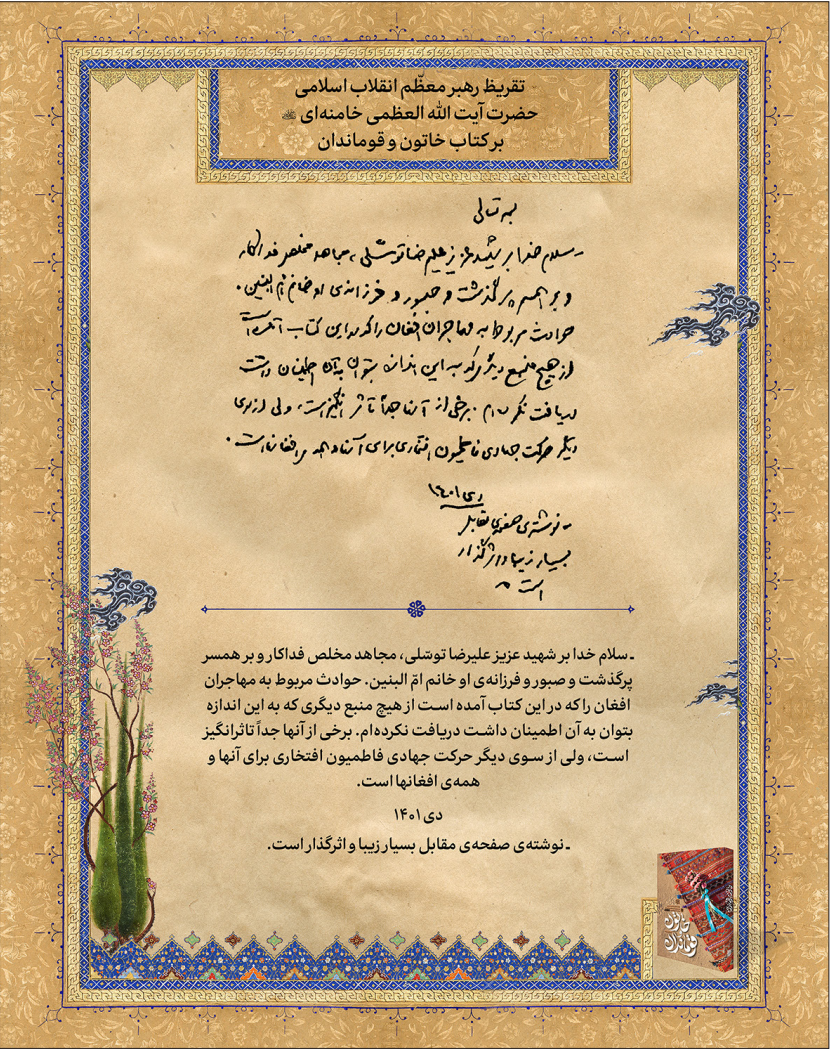 تقریظ رهبر معظّم انقلاب اسلامی
حضرت آیت الله العظمی خامنه‌ای
بر کتاب خاتون و قوماندان
بسمه تعالی
ـ سلام خدا بر شهید عزیز علیرضا توسّلی، مجاهد مخلص فداکار
و بر همسر پرگذشت و صبور و فرزانه‌ی او خانم امّ البنین.
حوادث مربوط به مهاجران افغان را که در این کتاب آمده است
از هیچ منبع دیگری که به این اندازه بتوان به آن اطمینان داشت
دریافت نکرده‌ام. برخی از آنها جداً تاثرانگیز است، ولی از سوی
دیگر حرکت جهادی فاطمیون افتخاری برای آنها و همه‌ی افغانها است.
دی ۱۴۰۱
ـ نوشته‌ی صفحه‌ی مقابل
بسیار زیبا و اثرگذار
است
ـ سلام خدا بر شهید عزیز علیرضا توسّلی، مجاهد مخلص فداکار و بر همسر
پرگذشت و صبور و فرزانه‌ی او خانم امّ البنین. حوادث مربوط به مهاجران
افغان را که در این کتاب آمده است از هیچ منبع دیگری که به این اندازه
بتوان به آن اطمینان داشت دریافت نکرده‌ام. برخی از آنها جداً تاثرانگیز
است، ولی از سوی دیگر حرکت جهادی فاطمیون افتخاری برای آنها و
همه‌ی افغانها است.
دی ۱۴۰۱
ـ نوشته‌ی صفحه‌ی مقابل بسیار زیبا و اثرگذار است.
خاتون
قوماندان